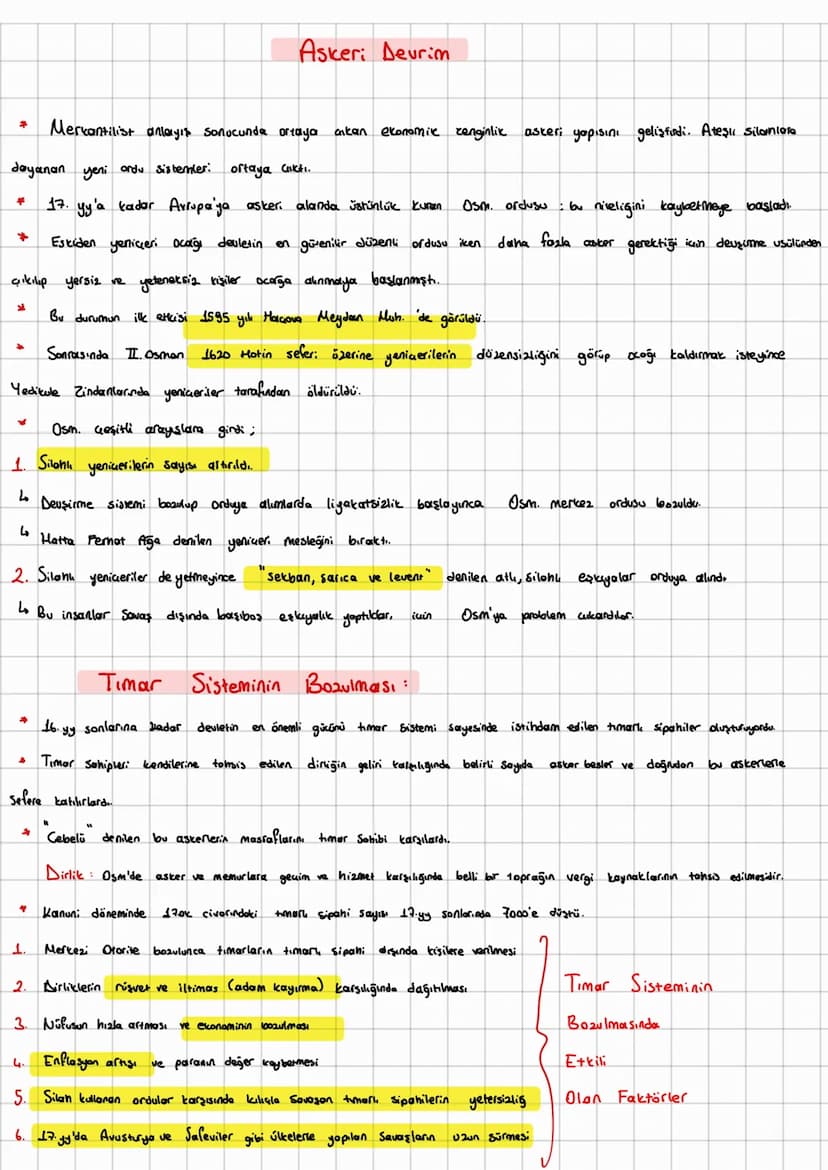 Askeri Devrim
* Merkantilist anlayış sonucunda ortaya çıkan ekonomik zenginlik askeri yapısını geliştirdi. Ateşli silahlara
dayanan yeni ordu sistemleri ortaya çıktı.
* 17. yy'a kadar Avrupa'ya askeri alanda üstünlük kuran Osm. ordusu : bu niteliğini kaybetmeye başladı.
* Eskiden yeniçeri ocağı devletin en güvenilir düzenli ordusu iken daha fazla asker gerektiği için devşirme usülünden
çıkılıp yersiz ve yeteneksiz kişiler ocağa alınmaya başlanmıştı.
* Bu durumun ilk etkisi 1595 yılı Haçova Meydan Muh. 'de görüldü.
* Sonrasında II. Osman 1620 Hotin seferi üzerine yeniçerilerin düzensizliğini görüp ocağı kaldırmak isteyince
Yedikule Zindanlarında yeniçeriler tarafından öldürüldü.
* Osm. çeşitli arayışlara girdi ;
1. Silahlı yeniçerilerin sayısı artırıldı.
↳ Devşirme sistemi bozulup orduya alımlarda liyakatsizlik başlayınca Osm. merkez ordusu bozuldu.
↳ Hatta Ferhat Ağa denilen yeniçeri mesleğini bıraktı.
2. Silahlı yeniçeriler de yetmeyince "sekban, sarıca ve levent" denilen atlı, silahlı eşkıyalar orduya alındı
↳ Bu insanlar savaş dışında başıboş eşkıyalık yaptıkları için Osm'ya problem çıkardılar.
Tımar Sisteminin Bozulması :
* 16. yy sonlarına kadar devletin en önemli gücünü tımar sistemi sayesinde istihdam edilen tımarlı sipahiler oluşturuyordu.
* Tımar sahipleri kendilerine tahsis edilen dirliğin geliri karşılığında belirli sayıda asker besler ve doğrudan bu askerlerle
sefere katılırlardı.
* "Cebelü" denilen bu askerlerin masraflarını tımar sahibi karşılardı.
Dirlik : Osm'de asker ve memurlara geçim ve hizmet karşılığında belli bir toprağın vergi kaynaklarının tahsis edilmesidir.
* Kanuni döneminde 170k civarındaki tımarlı sipahi sayısı 17.yy sonlarında 7000'e düştü.
1. Merkezi Otorite bozulunca tımarların tımarlı sipahi dışında kişilere verilmesi
2. Dirliklerin rüşvet ve iltimas (adam kayırma) karşılığında dağıtılması
3. Nüfusun hızla artması ve ekonominin bozulması
4. Enflasyon artışı ve paranın değer kaybetmesi
5. Silah kullanan ordular karşısında kılıçla savaşan tımarlı sipahilerin yetersizliği
6. 17.yy'da Avusturya ve Safeviler gibi ülkelerle yapılan savaşların uzun sürmesi
Tımar Sisteminin
Bozulmasında
Etkili
Olan Faktörler